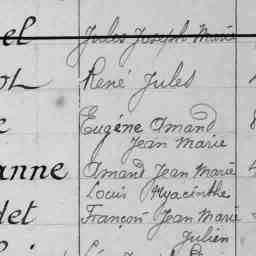 el Jules Joseph Marie
René Jules
Eugène Amand
Jean Marie
anne Amand Jean Marie
Louis Hyacinthe
det François Jean Marie
Julien